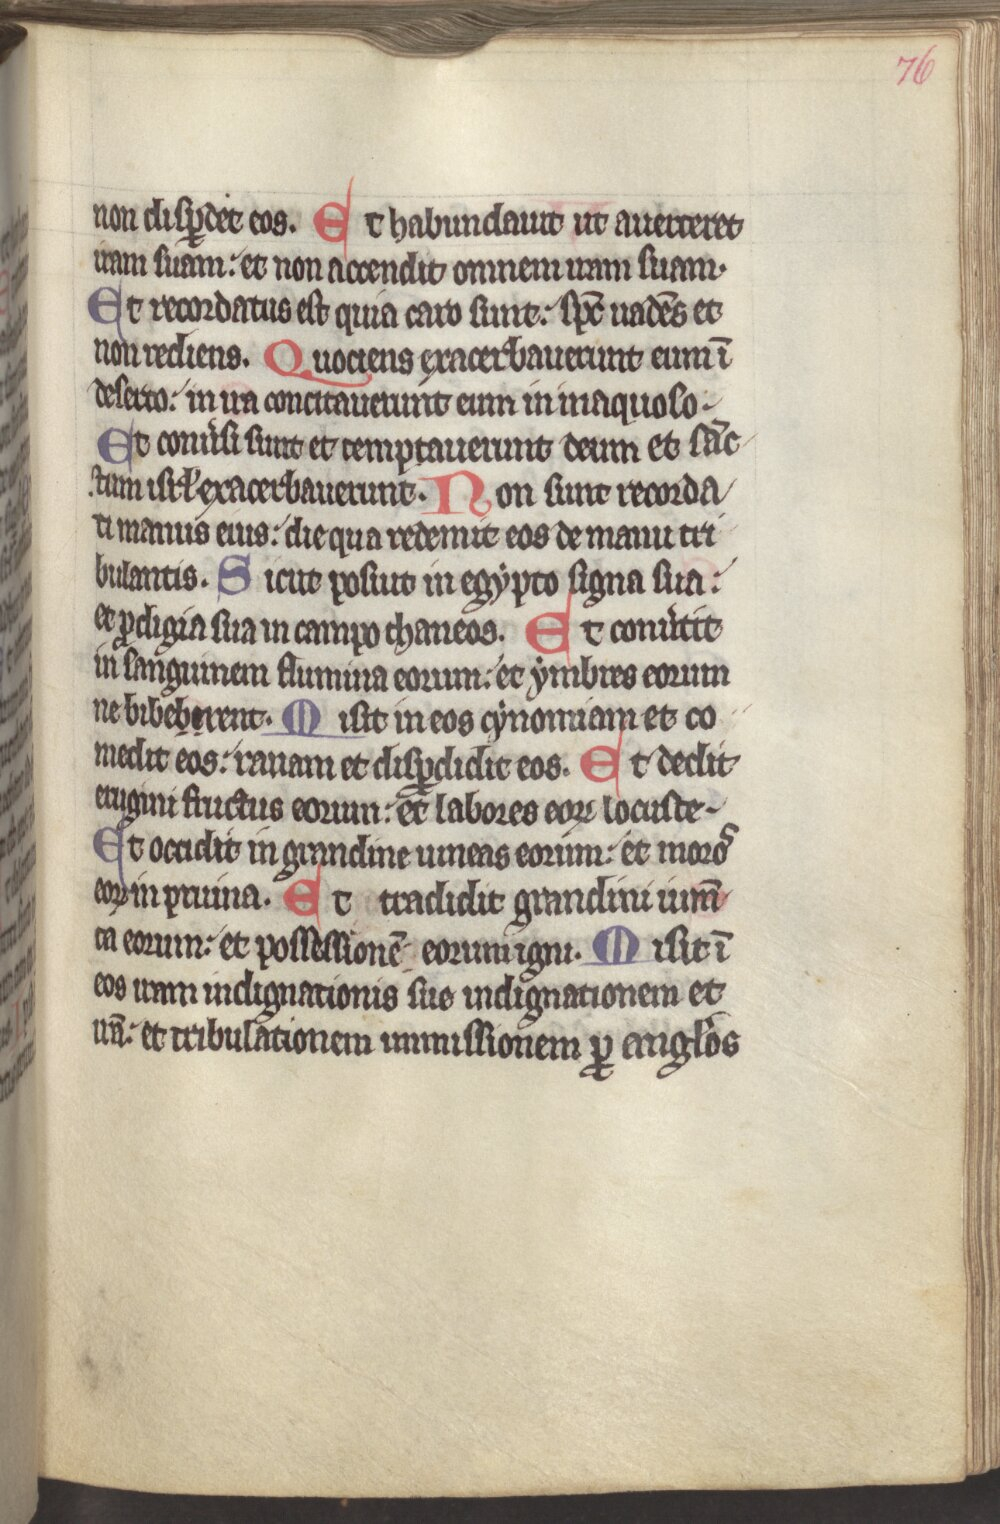 76
non disꝑdet eos. Et habundauit ut auerteret
iram suam: et non accendit omnem iram suam.
Et recordatus est quia caro sunt: sp̄c uadēs et
non rediens. Quociens exacerbauerunt eum ī
deserto: in ira concitauerunt eum in inaquoso.
Et conu̾si sunt et temptauerunt deum et sāc
tum isrl̾ exacerbauerunt. Non sunt recorda
ti manus eius: die qua redemit eos de manu tri
bulantis. Sicut posuit in egypto signa sua:
et ꝓdigia sua in campo thaneos. Et conu̾tit
in sanguinem flumina eorum: et ymbres eorum
ne biberent. Misit in eos cynomiam et co
medit eos: ranam et disꝑdidit eos. Et dedit
erugini fructus eorum: et labores eoꝝ locuste.
Et occidit in grandine uineas eorum: et moros
eoꝝ in pruina. Et tradidit grandini ium̄
ta eorum: et possessionē eorum igni. Misit ī
eos iram indignationis sue indignationem et
irā: et tribulationem inmissionem ꝑ angl̾os